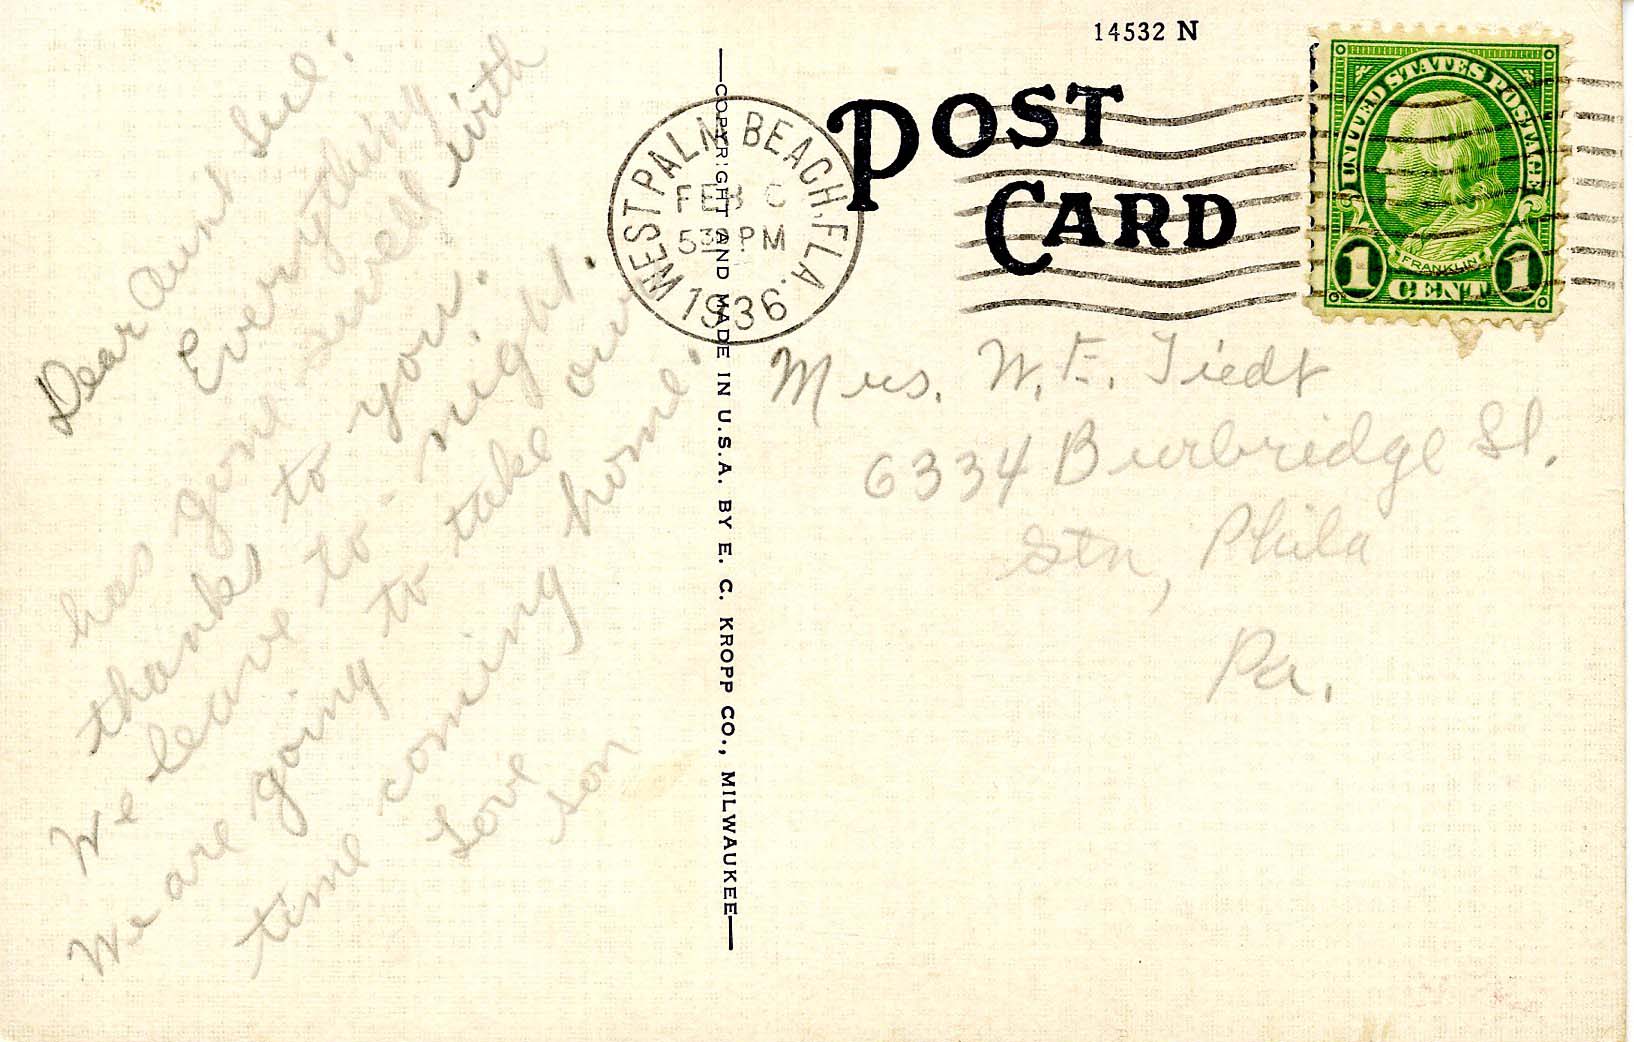 Dear Aunt Sue:
Everything
has gone swell with
thanks to you.
We leave to-night.
We are going to take our
time coming home.
Love
son
COPYRIGHT AND MADE IN U.S.A. BY E. C. KROPP CO., MILWAUKEE
WEST PALM BEACH, FLA.
FEB
PM
1936
14532 N
POST
CARD
UNITED STATES POSTAGE
FRANKLIN
1 CENT 1
Mrs. W. E. Tiedt
6334 Burbridge St.
Gtn, Phila
Pa.